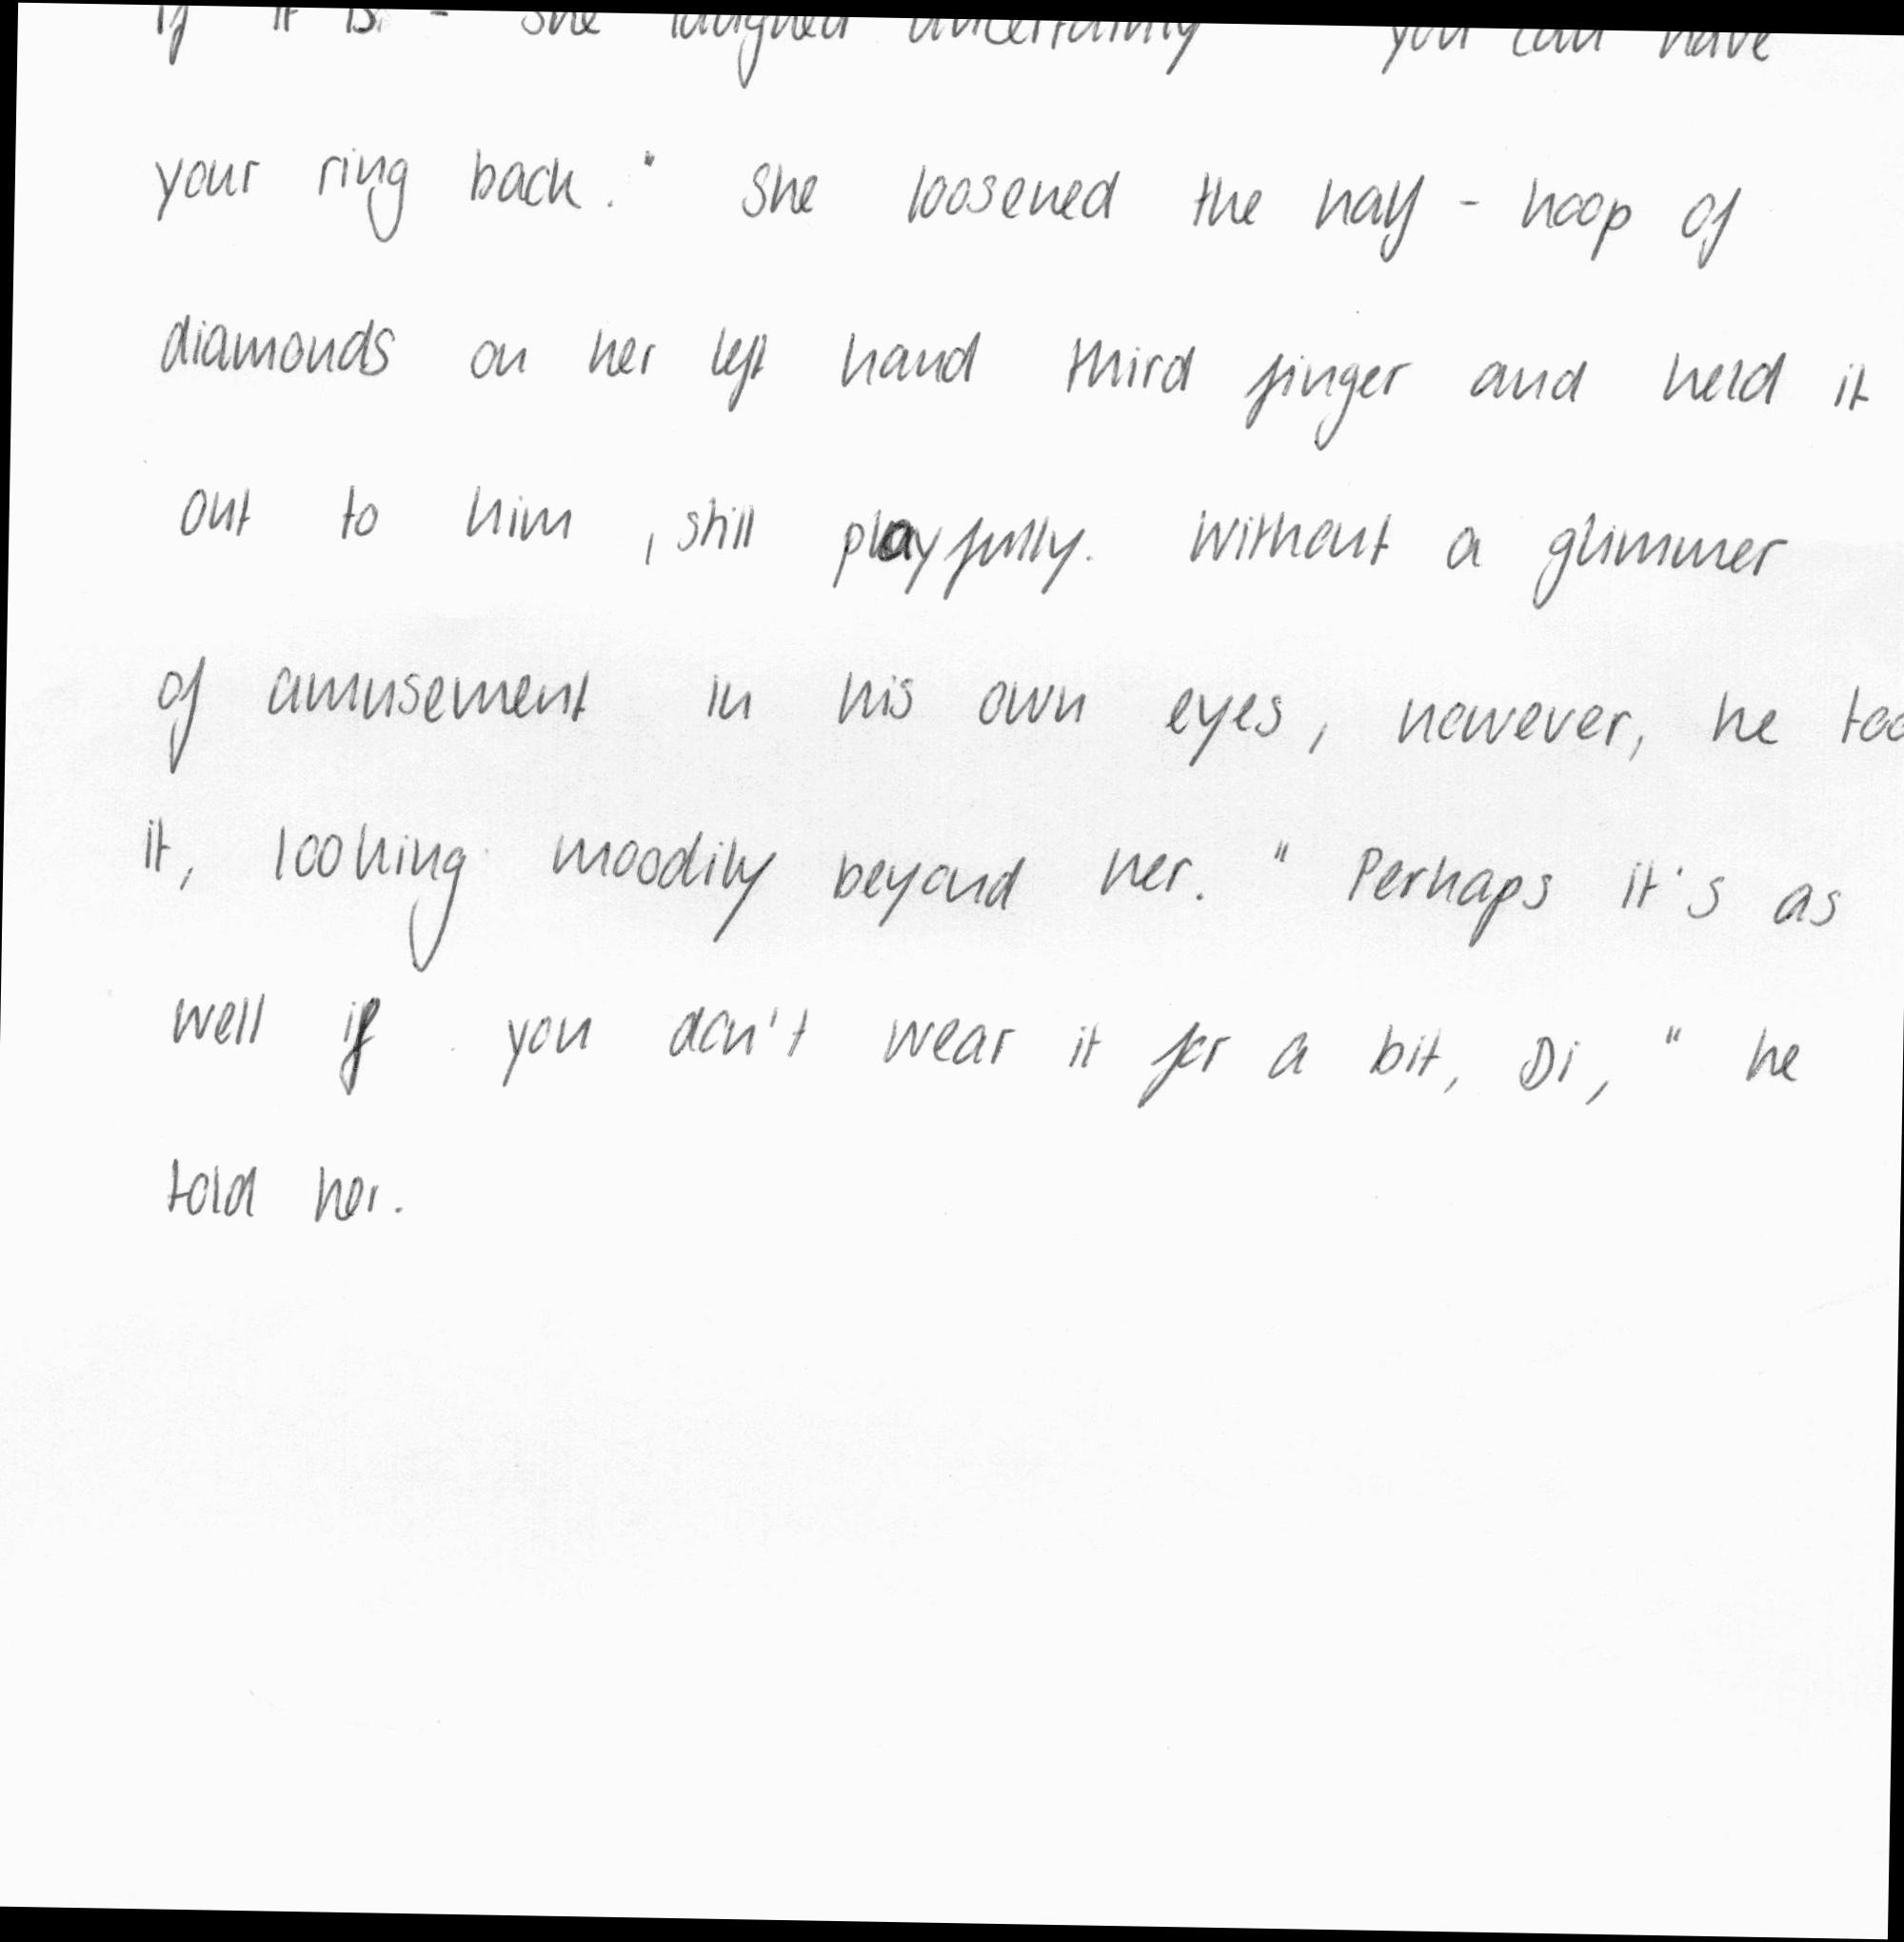 if it is - she laughed uncertainly you can have
your ring back." She loosened the half - hoop of
diamonds on her left hand third finger and held it
out to him, still playfully. Without a glimmer
of amusement in his own eyes, however, he too
it, looking moodily beyond her. "Perhaps it's as
well if you don't wear it for a bit, Di," he
told her.